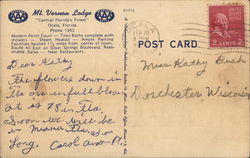 AAA
Mt. Vernon Lodge
AAA
"Central Florida's Finest"
Ocala, Florida
Phone 1362
Modern Motor Court — Tiled Baths complete with
showers — Steam Heated — Ample Parking
Facilities located 1½ miles from center of town.
Route 40 East on Silver Springs Boulevard. Reas-
onable Rates — Near Restaurants
POST CARD
2 CENTS 2
Dear Kathy
The flowers down in
Fla are in full bloom
at 78° in Fla.
Soon we will be
in Miami Fla.
So
Long. Carol
Miss Kathy Bush
Dorchester, Wisconsin